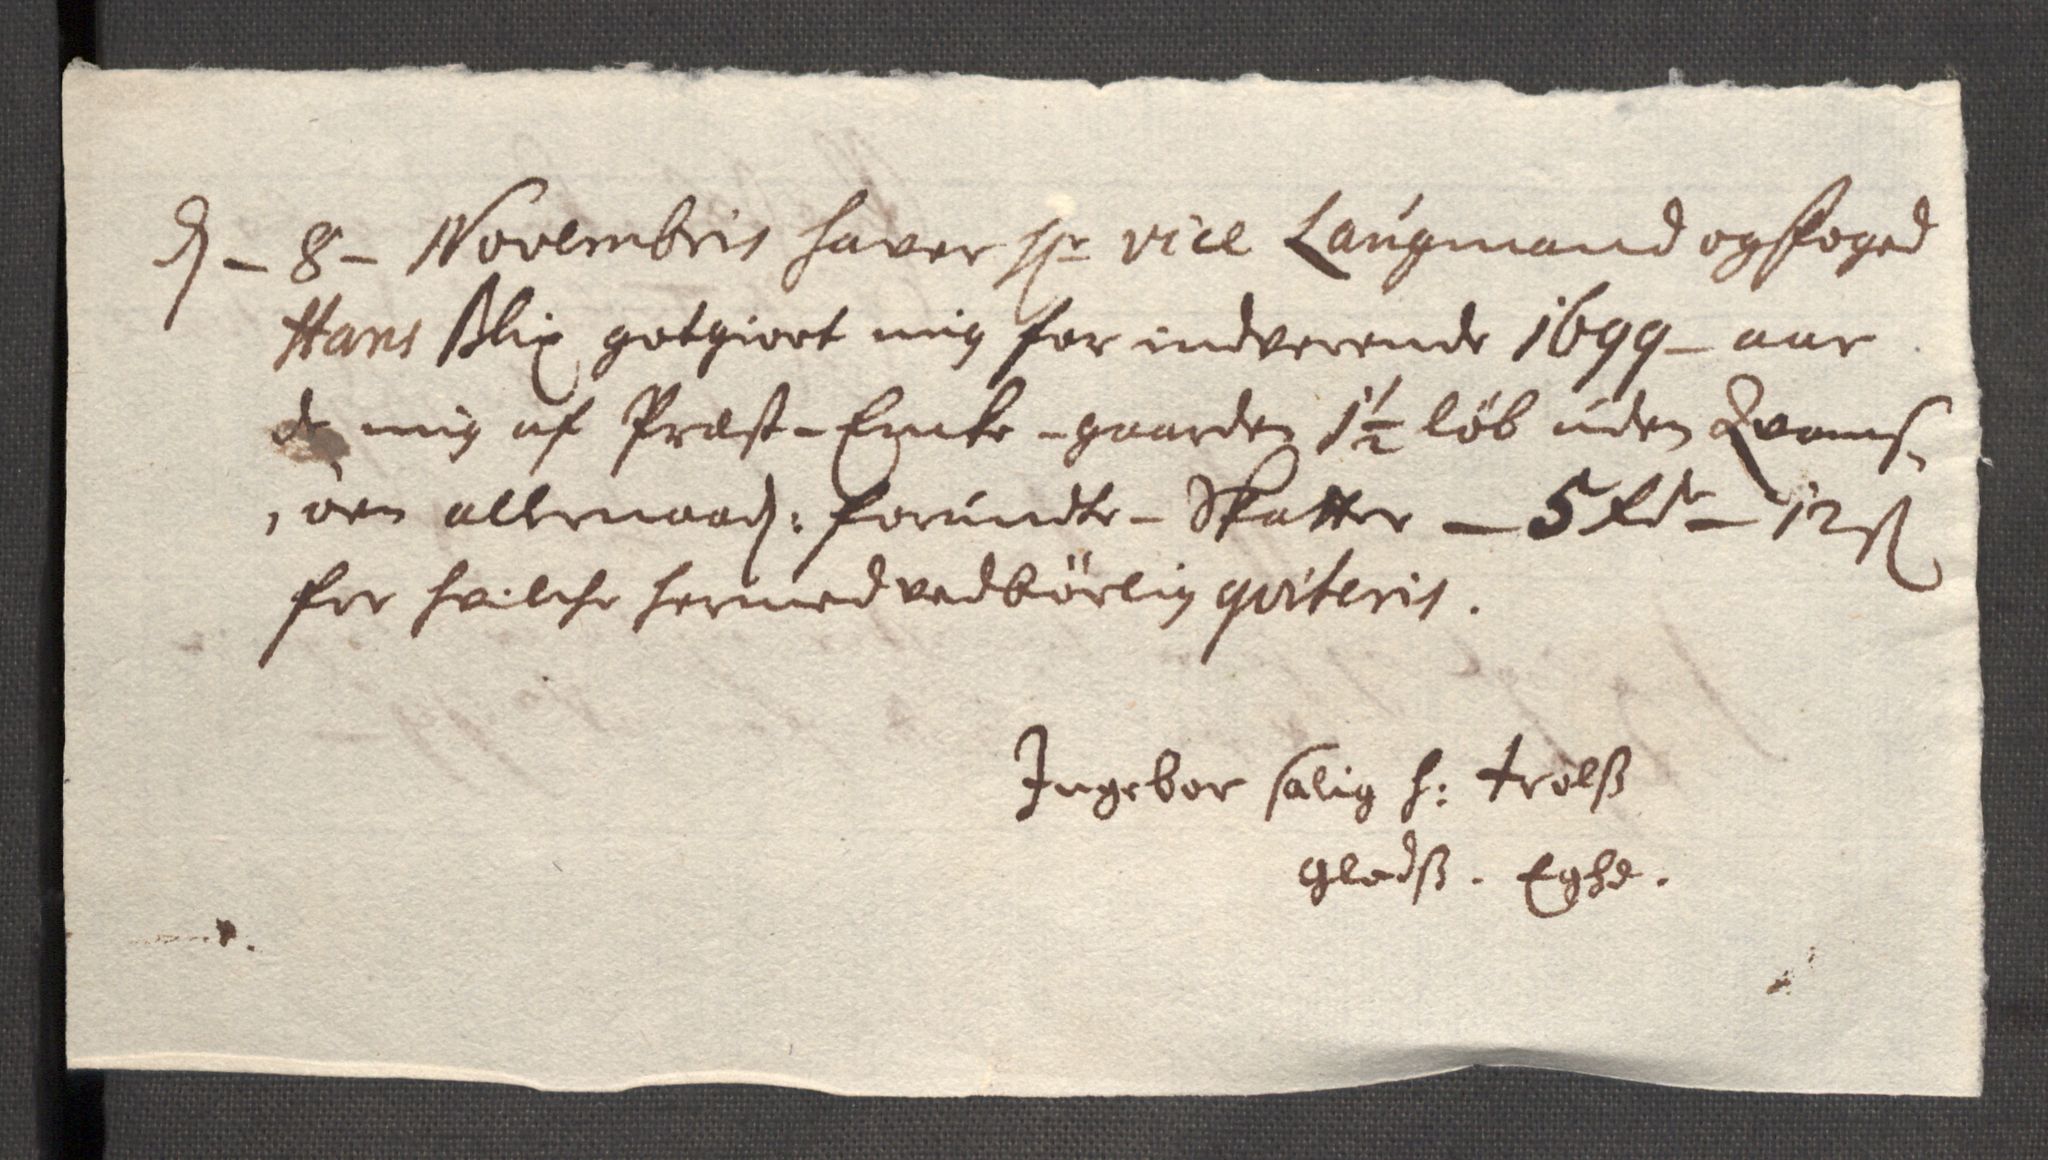 d. - 8 - Novembris haver Hr vice Laugmand og foged
Hans Blix gotgiort mig for indverende 1699 - aar
de mig af Præst-Encke-gaarden 1½ löb uden
allernaad: forundte - Skatter - 5 Rdr - 12 ß
for hvilche hermed vedbörlig qviteris.
Ingebor salig h: trolß
gladß. Eghe.